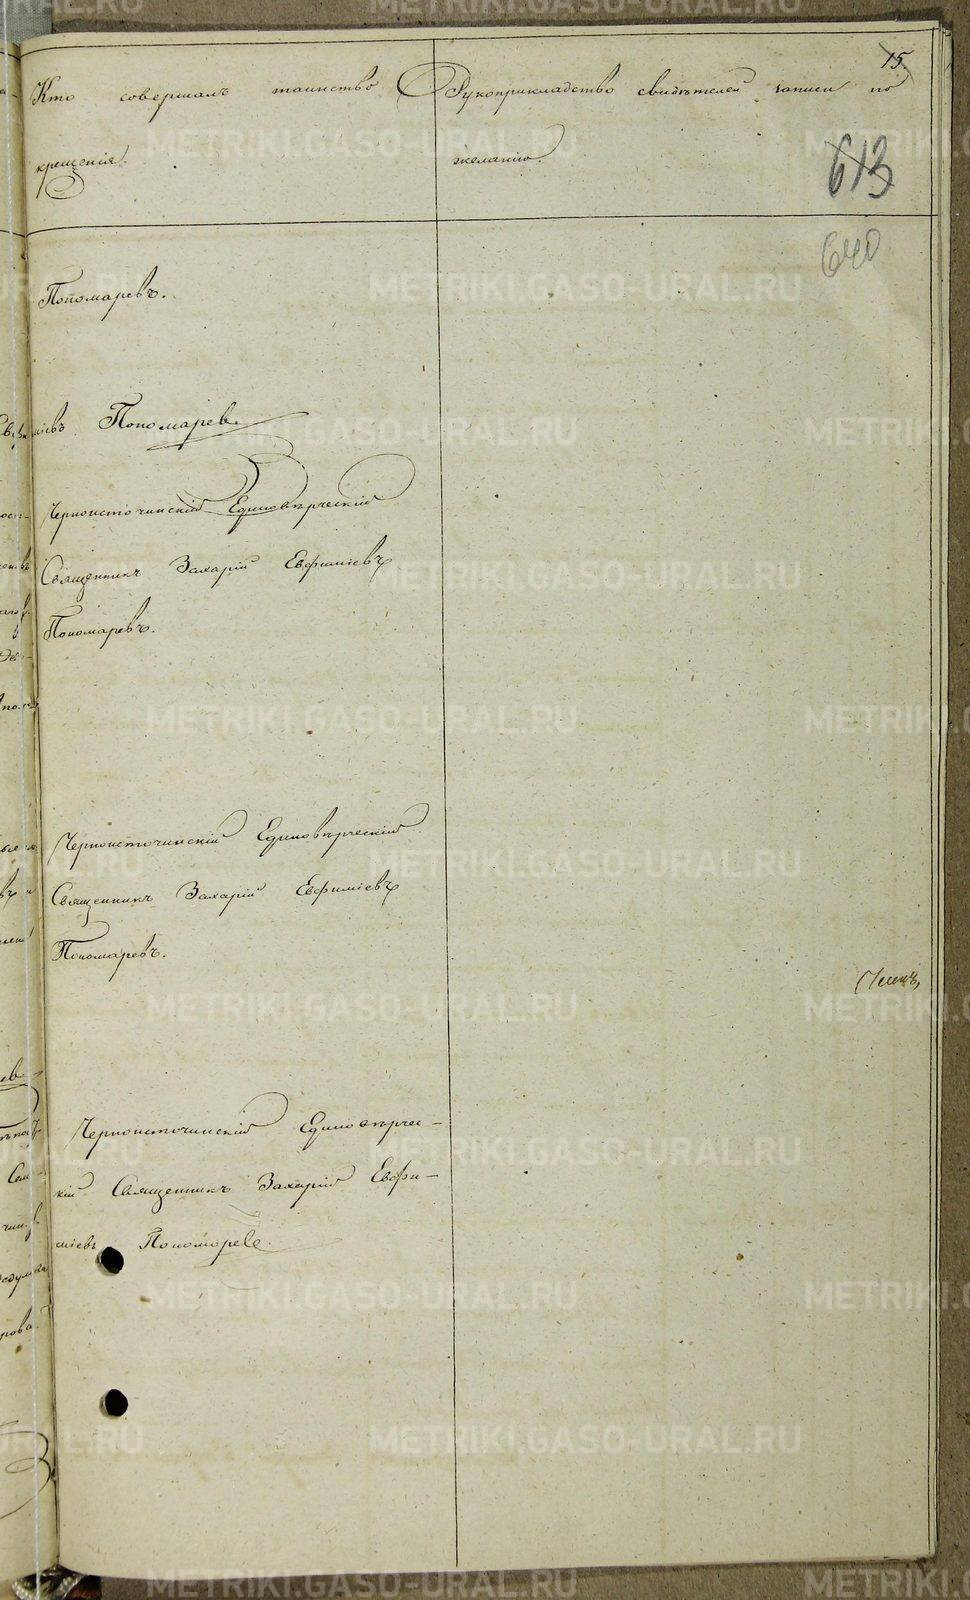 15.
Кто совершалъ таинство
крещенія.
Рукоприкладство свидѣтелей записи по
желанію.
613
640
Пономаревъ.
міевъ Пономарев.
Черноисточинскій Единовѣрческій
Священникъ Захарій Евфиміевъ
Пономаревъ.
Черноисточинскій Единовѣрческій
Священникъ Захарій Евфиміевъ
Пономаревъ.
Черноисточинскій Единовѣрчес-
кій Священникъ Захарій Евфи-
міевъ Пономарев.
METRIKI.GASO-URAL.RU